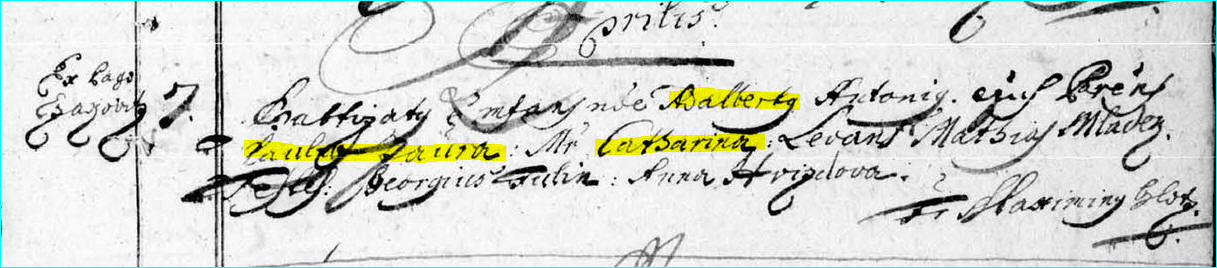 Aprilis.
Ex Pago
7. Baptizatus Emfans noe Adalbertus Antonius. ejus Parens
Paulus Jaura: Mr Catharina: Levans Mathias Mladez.
Testes: Georgius Tulin: Anna Hvizdova.
Fr Maximinus